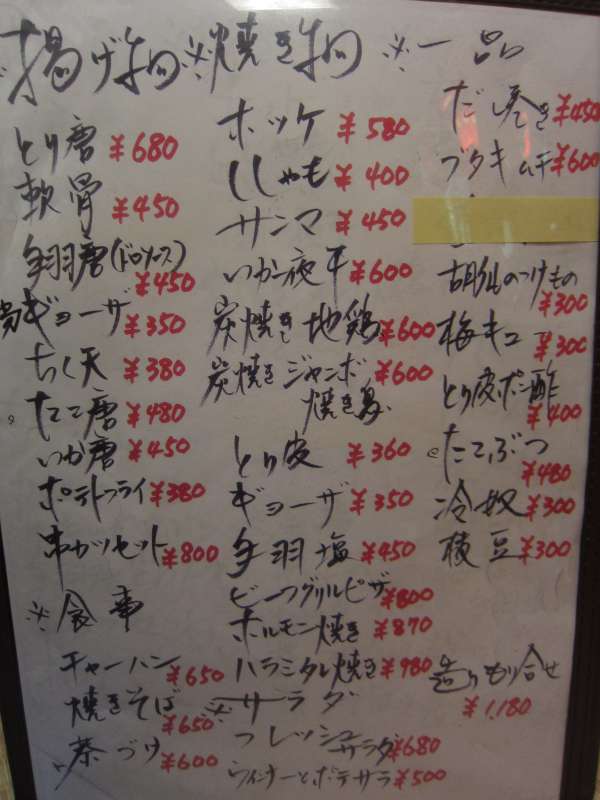 揚げ物
とり唐 ¥680
軟骨 ¥450
手羽唐(ドロソース)
¥450
ギョーザ ¥350
ちく天 ¥380
たこ唐 ¥480
いか唐 ¥450
ポテトフライ ¥380
串かツセット ¥800
※食事
チャーハン ¥650
焼きそば
¥650
茶づけ ¥600
※焼き物
ホッケ ¥580
ししゃも ¥400
サンマ ¥450
いか一夜干 ¥600
炭焼き地鶏 ¥600
炭焼きジャンボ ¥600
焼き鳥
とり皮 ¥360
ギョーザ ¥350
手羽塩 ¥450
ビーフグリルピザ ¥800
ホルモン焼き ¥870
ハラミタレ焼き ¥980
※サラダ
フレッシュ
サラダ ¥680
ウィンナーとポテサラ ¥500
※一品
だし巻き ¥450
ブタキムチ ¥600
胡瓜のつけもの
¥300
梅キュー ¥300
とり皮ポン酢
¥400
たこぶつ
¥480
冷奴 ¥300
枝豆 ¥300
造りもり合せ
¥1,180